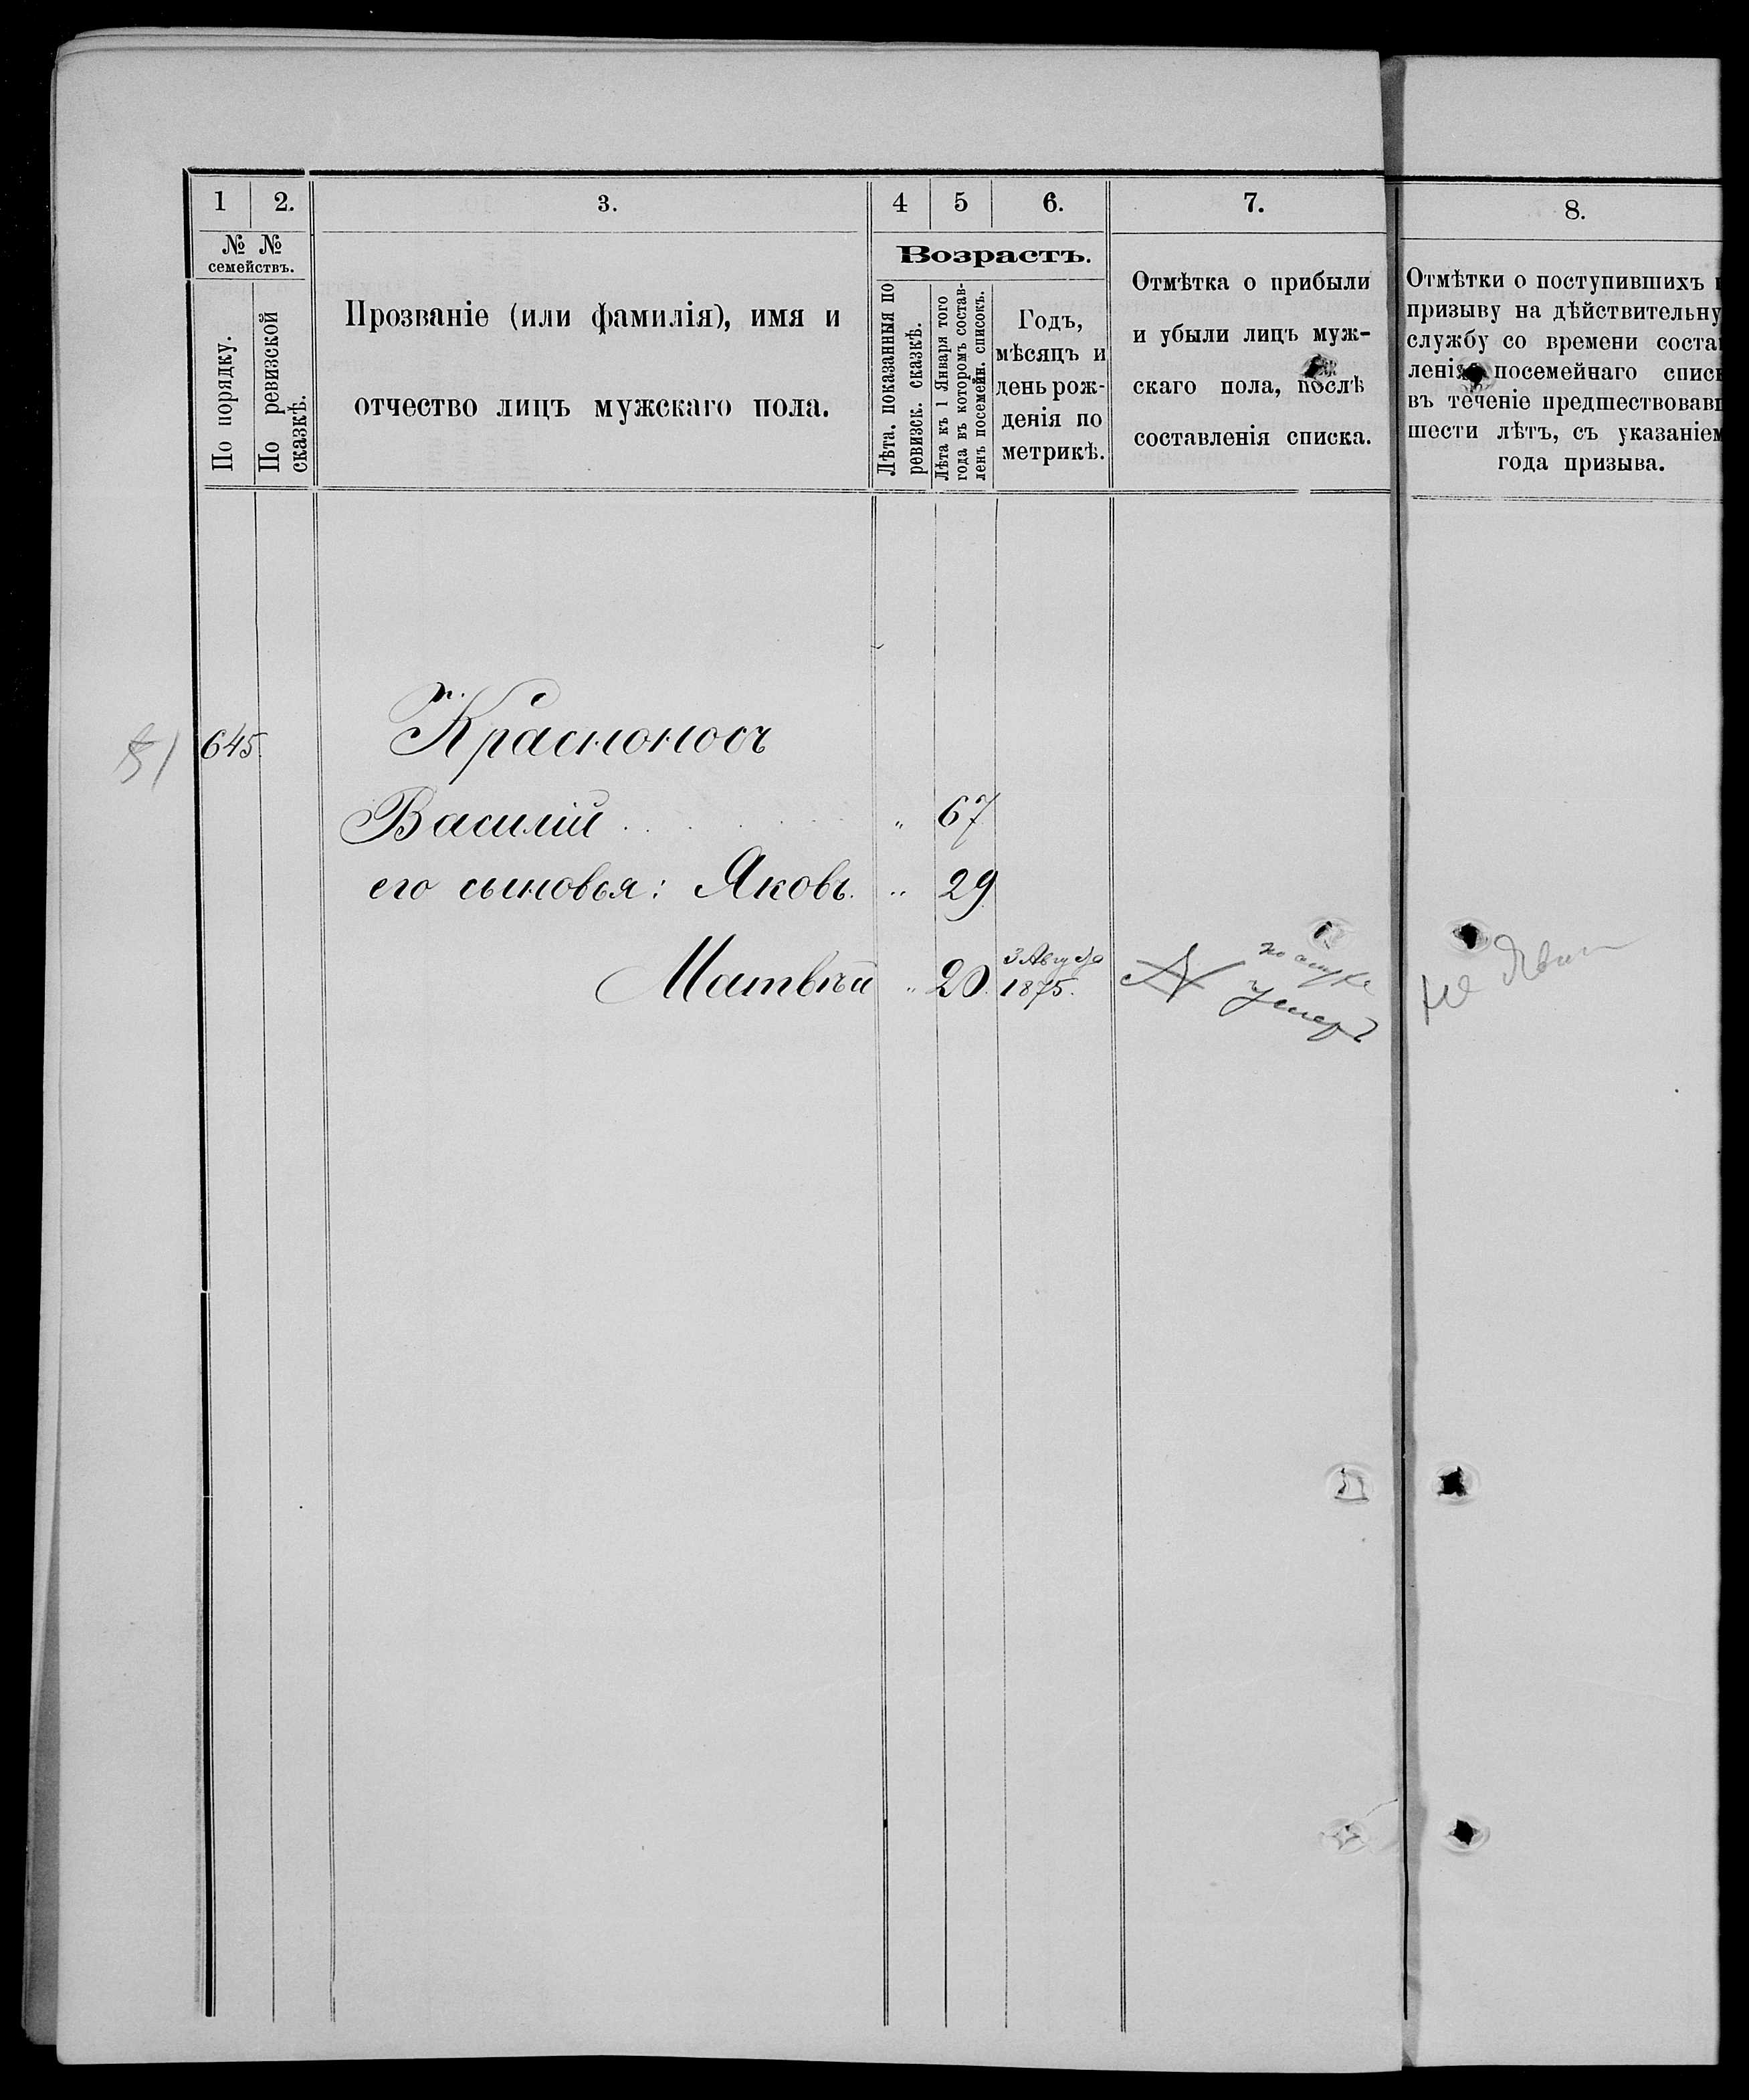 1 2. 3. 4 5 6. 7. 8.
№ №
семействъ.
По порядку.
По ревизской
сказкѣ.
Прозваніе (или фамилія), имя и
отчество лицъ мужскаго пола.
Возрастъ.
Лѣта, показанныя по
ревизск. сказкѣ.
Лѣта къ 1 Января того
года въ которомъ состав-
ленъ посемейн. списокъ.
Годъ,
мѣсяцъ и
день рож-
денія по
метрикѣ.
Отмѣтка о прибыли
и убыли лицъ муж-
скаго пола, послѣ
составленія списка.
Отмѣтки о поступившихъ
призыву на дѣйствительну
службу со времени соста
ленія посемейнаго списк
въ теченіе предшествовавш
шести лѣтъ, съ указаніем
года призыва.
51 645. Красноносъ
Василій . . . . . „ 67
его сыновья: Яковъ. „ 29
Матвѣй „ 20. 3 Августа 1875.
умеръ
не явил